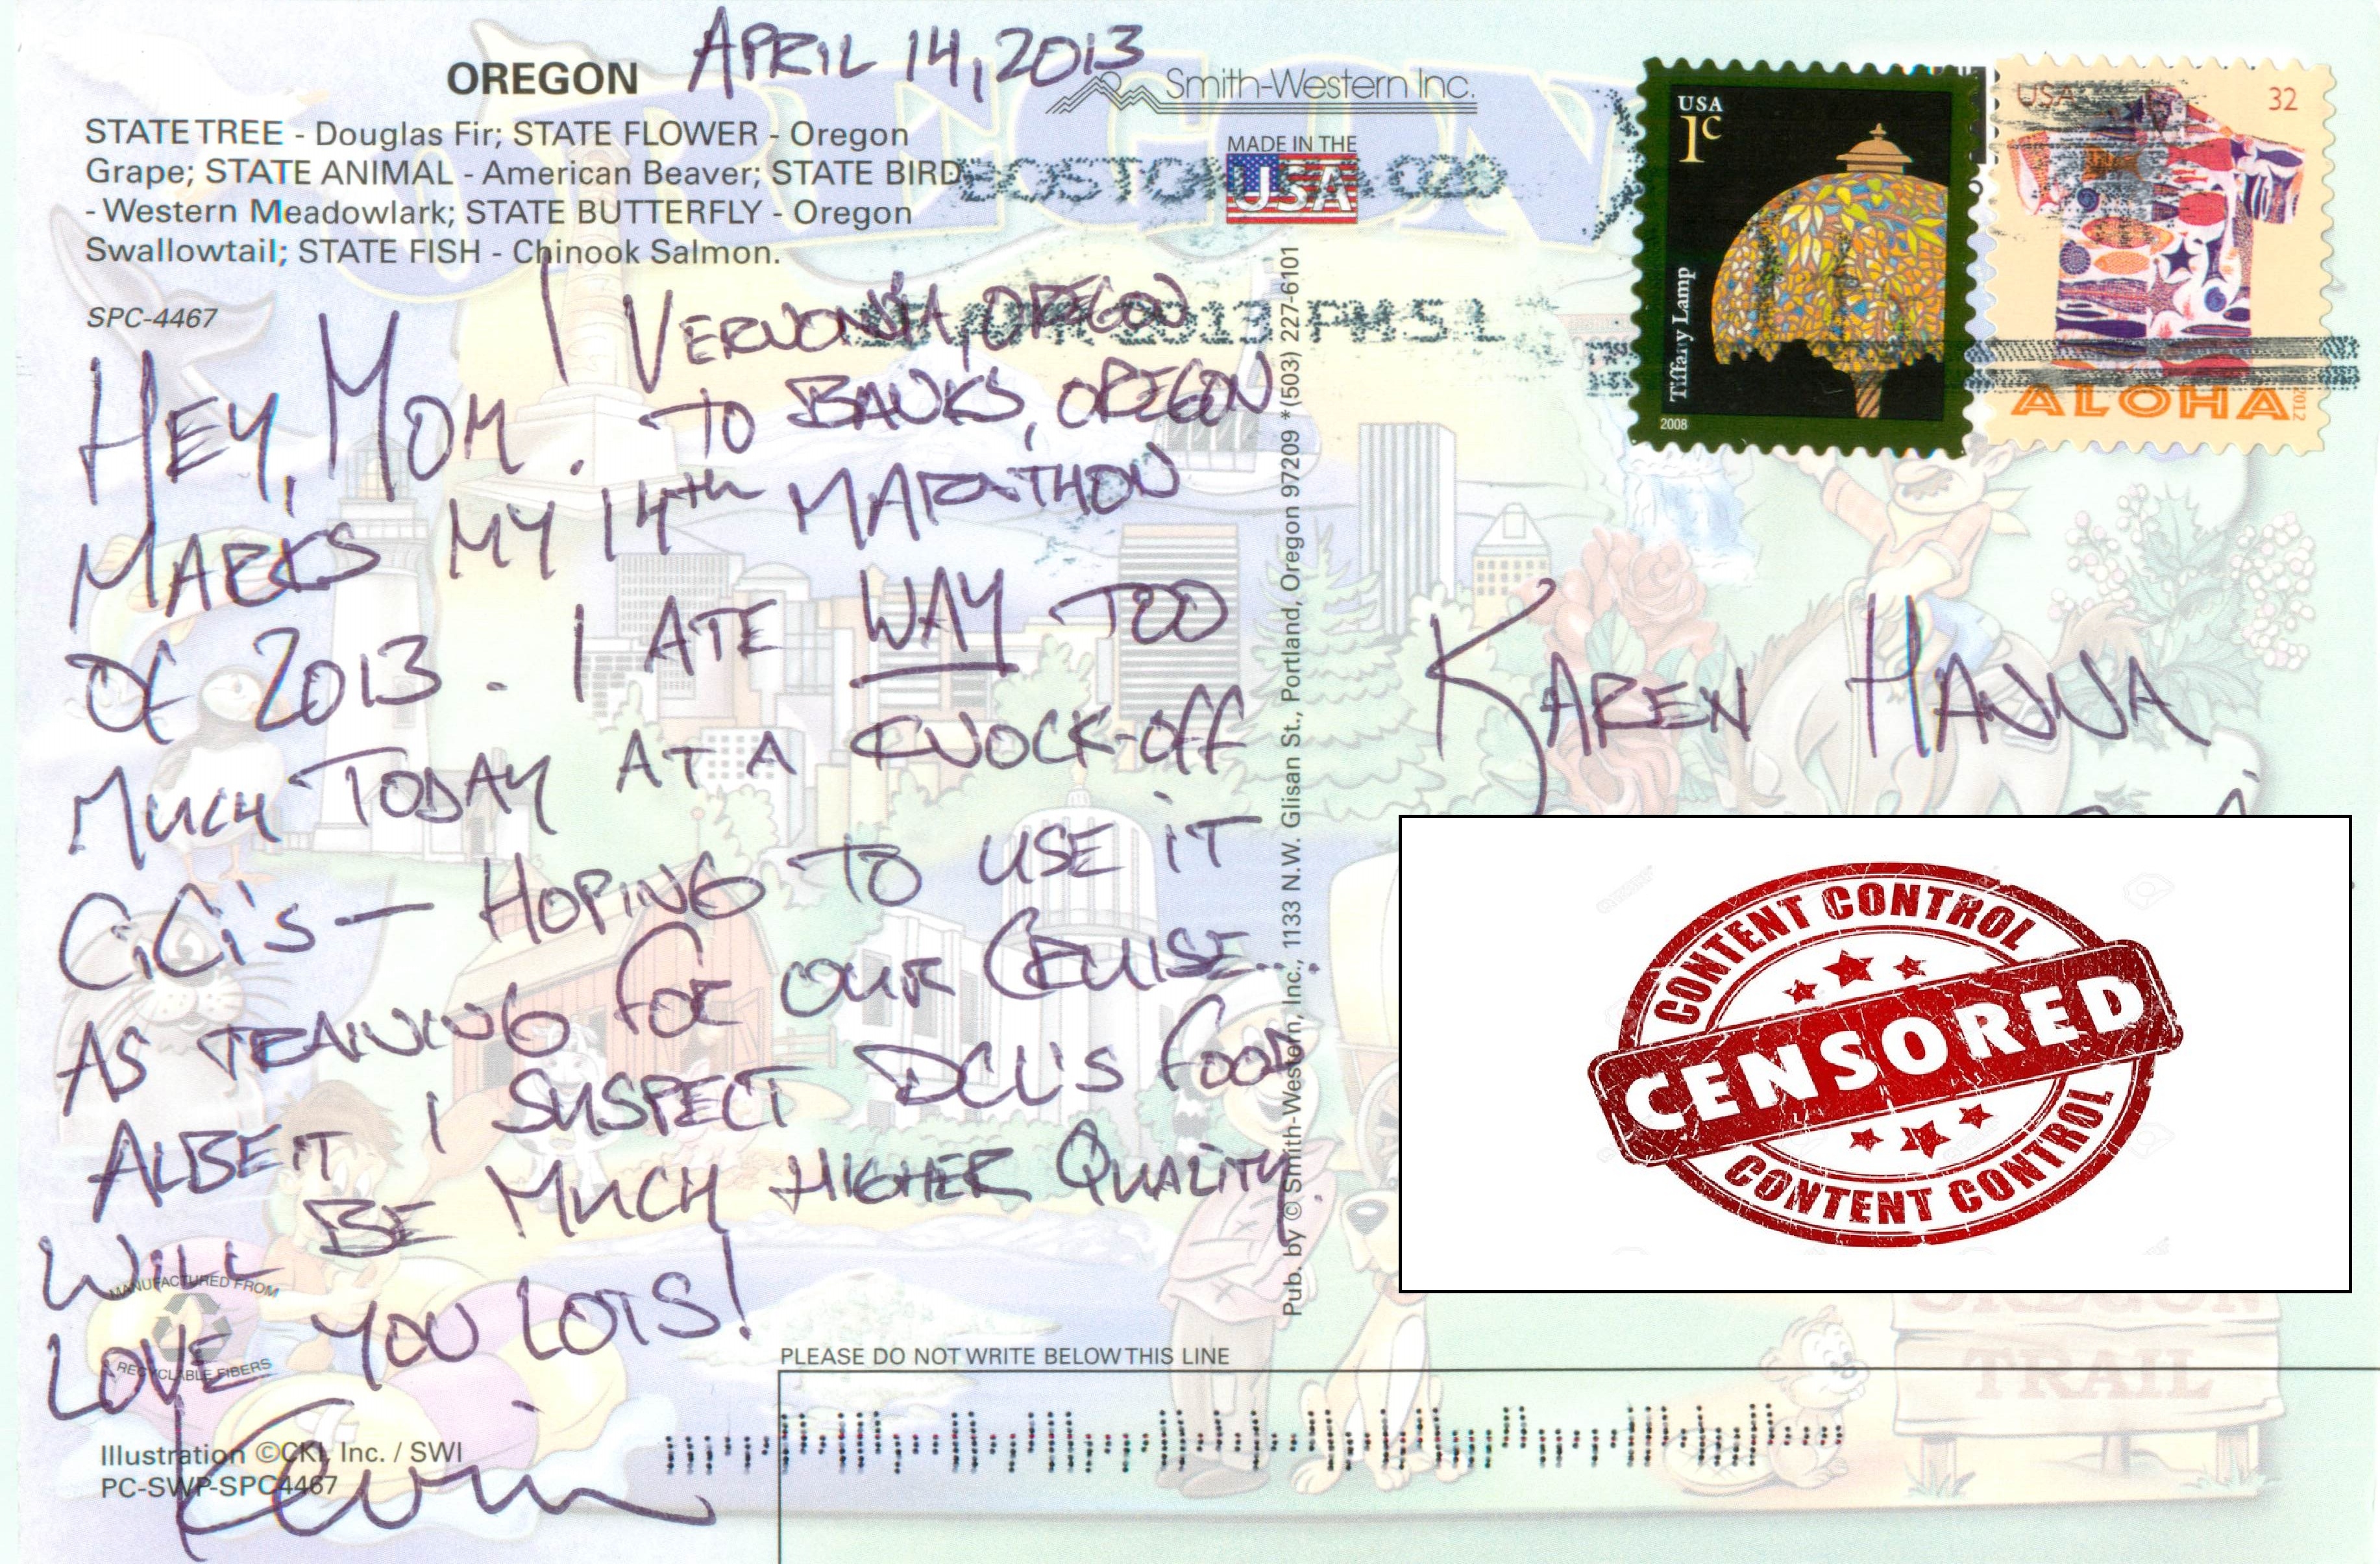 OREGON
APRIL 14, 2013
STATE TREE - Douglas Fir; STATE FLOWER - Oregon
Grape; STATE ANIMAL - American Beaver; STATE BIRD
- Western Meadowlark; STATE BUTTERFLY - Oregon
Swallowtail; STATE FISH - Chinook Salmon.
SPC-4467
Smith-Western Inc.
MADE IN THE
USA
BOSTON MA 020
2013 PM 5 L
USA
1c
Tiffany Lamp
2008
USA 32
ALOHA
2012
HEY, MOM. | VERNONIA, OREGON
TO BANKS, OREGON
MARKS MY 14th MARATHON
OF 2013. I ATE WAY TOO
MUCH TODAY AT A KNOCK-OFF
CiCi's — HOPING TO USE iT
AS TRAINING FOR OUR CRUISE...
ALBEIT I SUSPECT DCL'S FOOD
WILL BE MUCH HIGHER QUALITY.
LOVE YOU LOTS!
Kevin
KAREN HANNA
CONTENT CONTROL
CENSORED
CONTENT CONTROL
Pub. by © Smith-Western, Inc., 1133 N.W. Glisan St., Portland, Oregon 97209 * (503) 227-6101
MANUFACTURED FROM
RECYCLABLE FIBERS
PLEASE DO NOT WRITE BELOW THIS LINE
Illustration ©CKI, Inc. / SWI
PC-SWP-SPC4467
OREGON
TRAIL